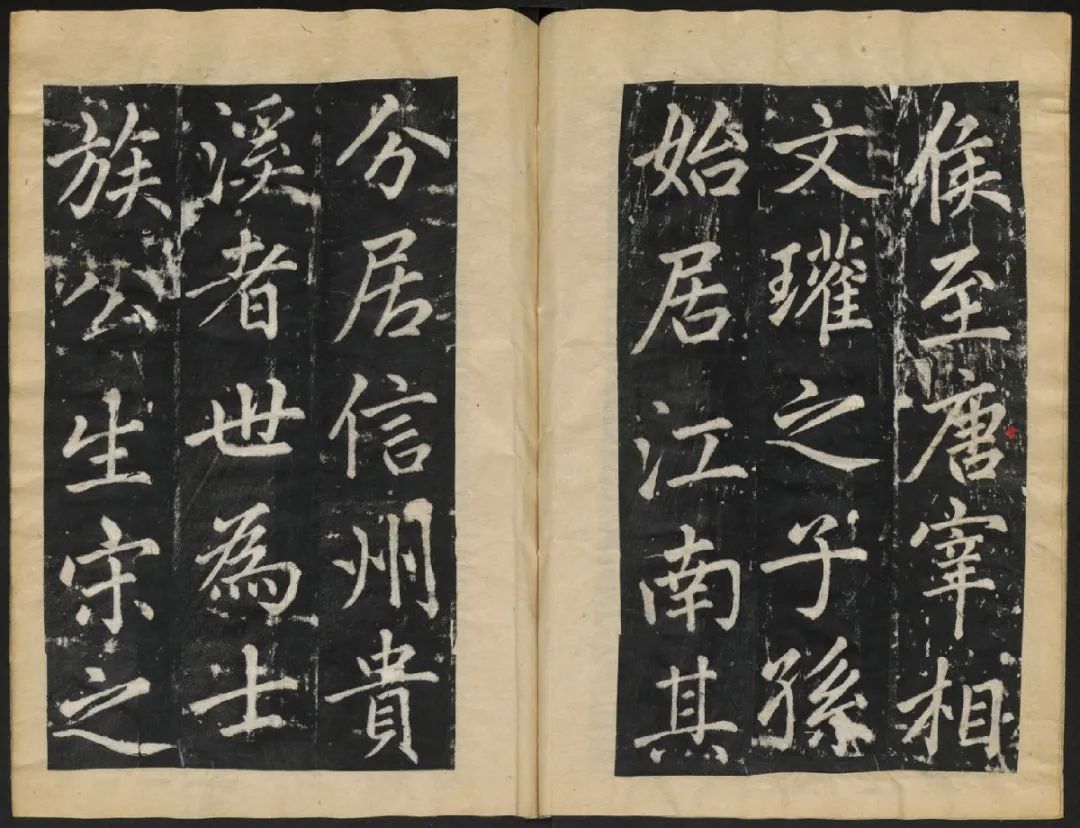 侯至唐宰相
文瓘之子孫
始居江南其
分居信州貴
溪者世為士
族公生宋之